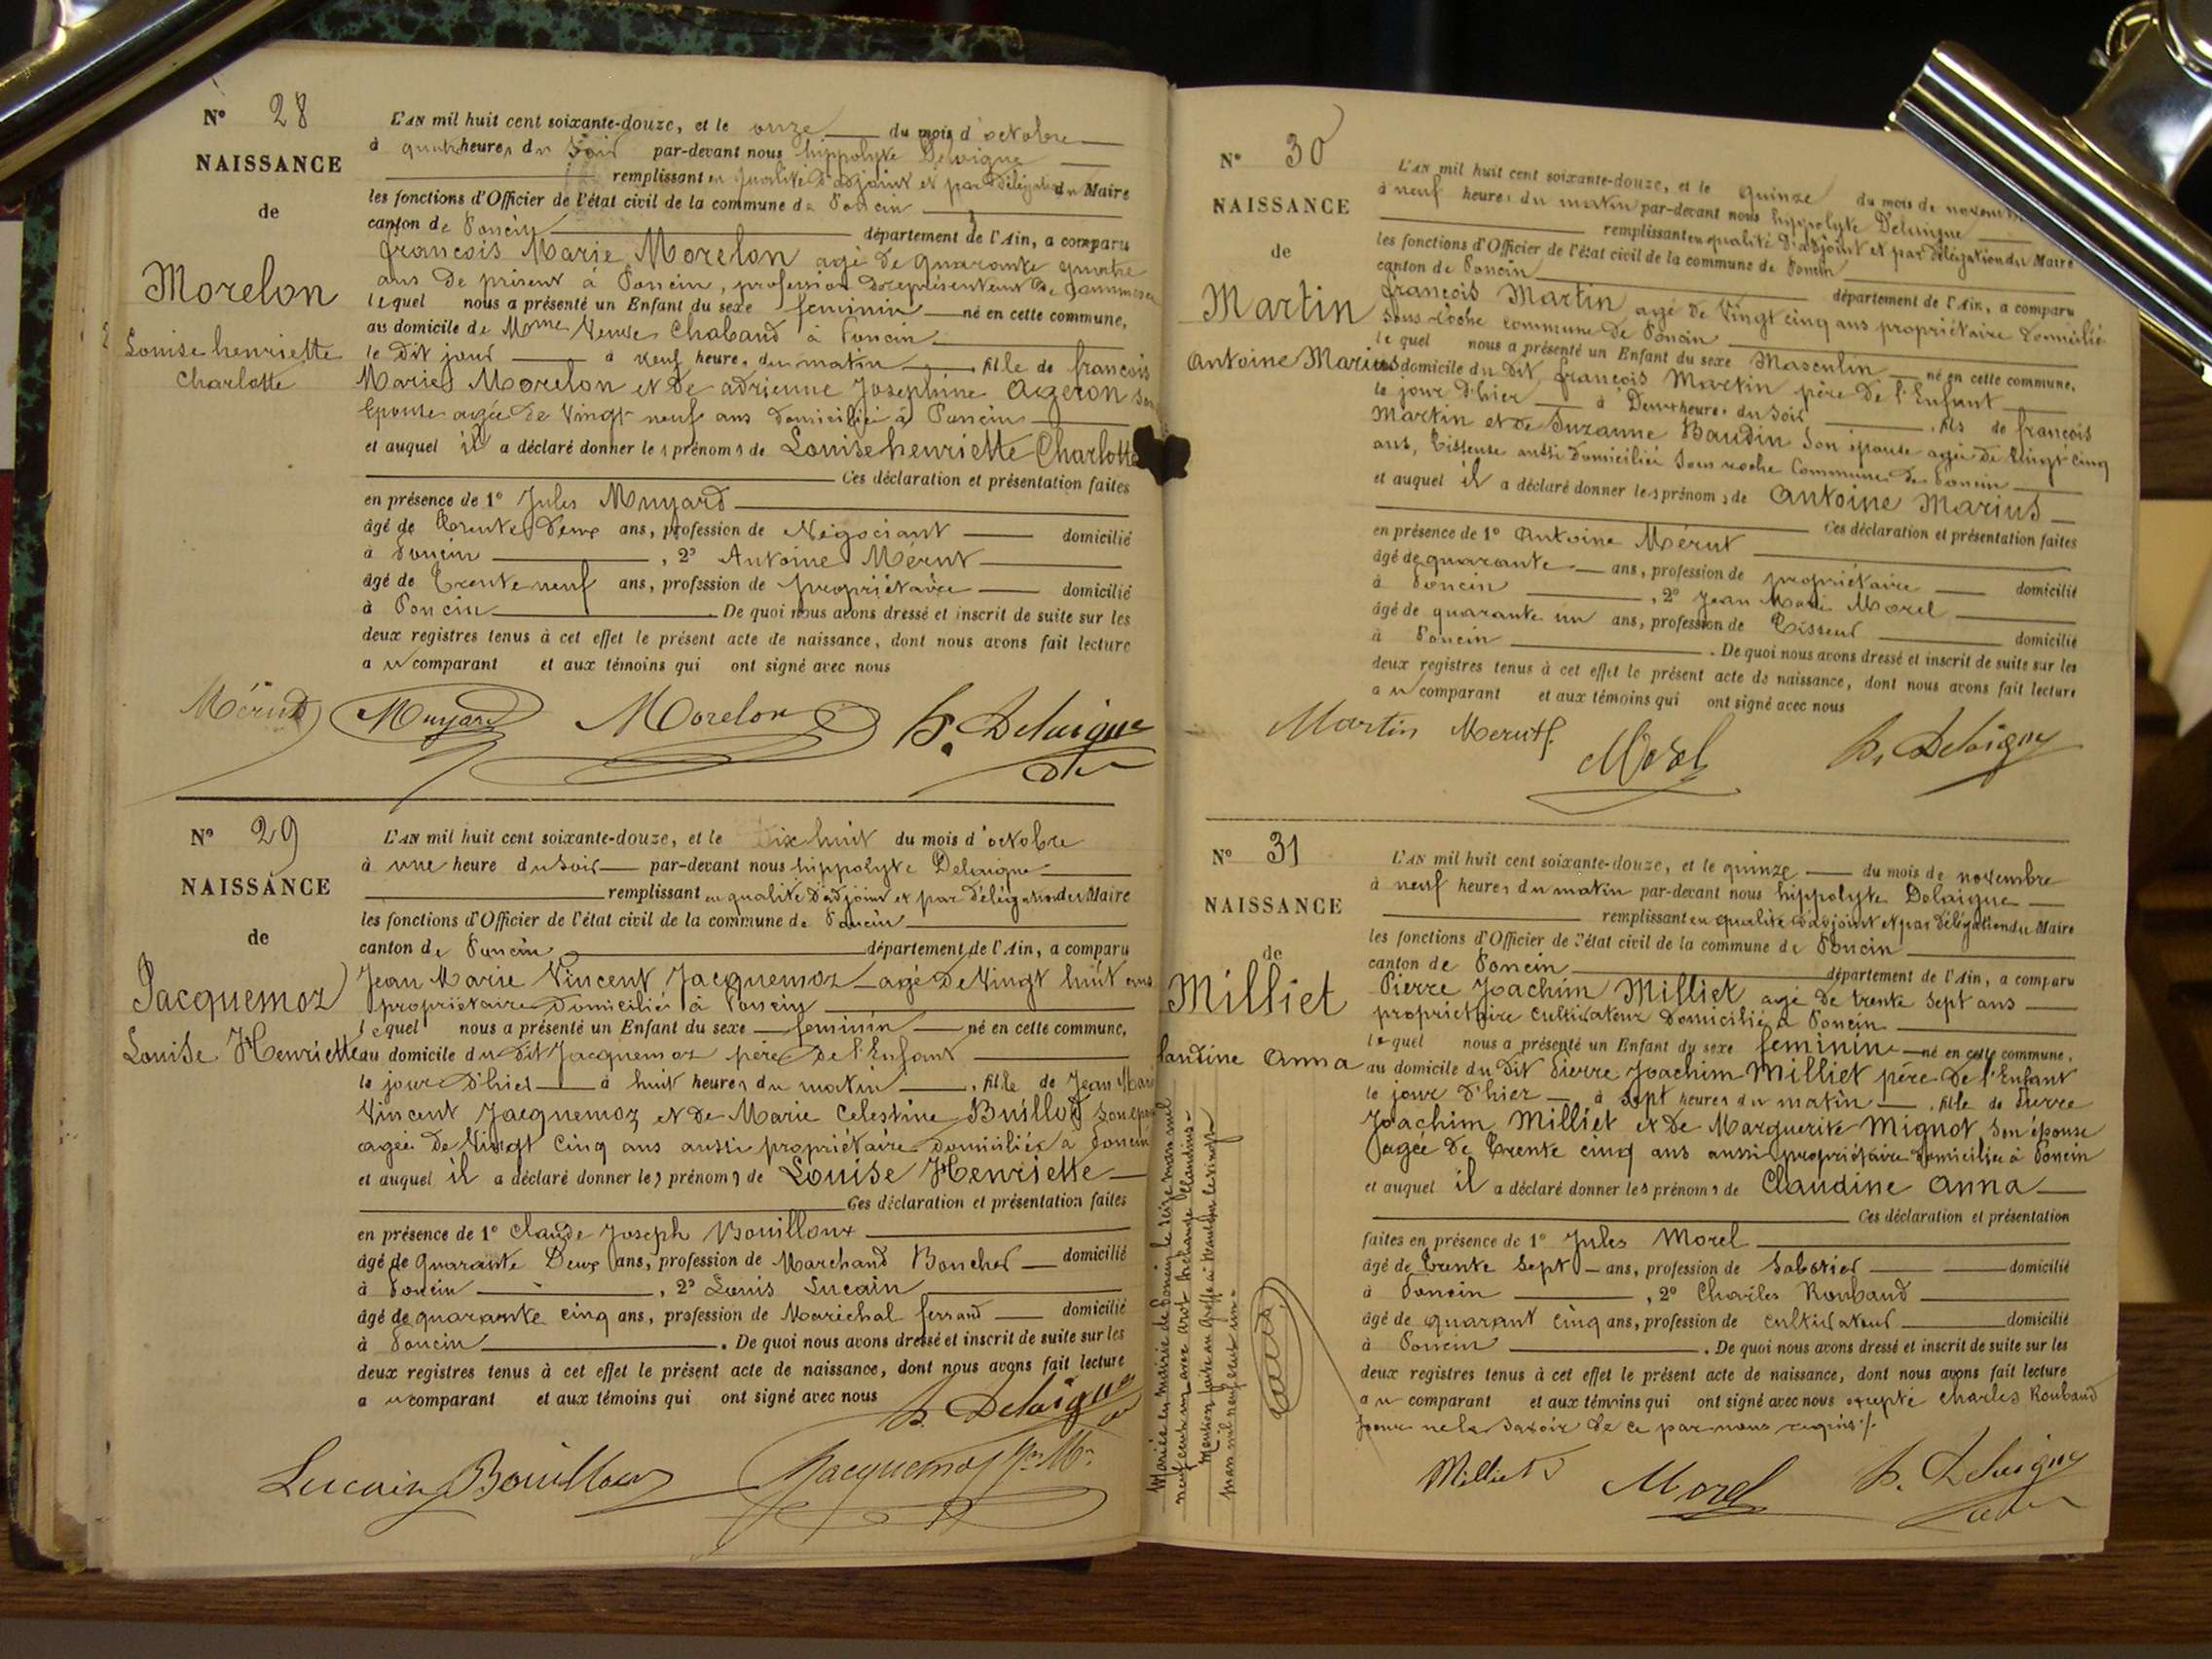 N° 28
NAISSANCE
de
Morelon
Louise henriette
Charlotte
L'AN mil huit cent soixante-douze, et le onze du mois d'octobre
à quatre heures du soir par-devant nous hippolyte Delaigue
remplissant en qualité d'adjoint et par délégation du Maire
les fonctions d'Officier de l'état civil de la commune de Poncin
canton de Poncin département de l'Ain, a comparu
françois Marie Morelon agé de quarante quatre
ans de présent à Poncin, profession de représentant de commerce
lequel nous a présenté un Enfant du sexe feminin né en cette commune,
au domicile de Mme Veuve Chaband à Poncin
le dit jour à neuf heures du matin fille de françois
Marie Morelon et de adrienne Josephine Ageron son
Epouse agée de Vingt neuf ans domiciliée à Poncin
et auquel il a déclaré donner les prénoms de Louise henriette Charlotte
Ces déclaration et présentation faites
en présence de 1° Jules Muyard
âgé de Trente Deux ans, profession de Négociant domicilié
à Poncin, 2° Antoine Mérut
âgé de Trente neuf ans, profession de propriétaire domicilié
à Poncin De quoi nous avons dressé et inscrit de suite sur les
deux registres tenus à cet effet le présent acte de naissance, dont nous avons fait lecture
au comparant et aux témoins qui ont signé avec nous
Mérut Muyard Morelon h. Delaigue
N° 29
NAISSANCE
de
Jacquemoz
Louise Henriette
L'AN mil huit cent soixante-douze, et le Dix huit du mois d'octobre
à une heure du soir par-devant nous hippolyte Delaigue
remplissant en qualité d'adjoint et par délégation du Maire
les fonctions d'Officier de l'état civil de la commune de Poncin
canton de Poncin département de l'Ain, a comparu
Jean Marie Vincent Jacquemoz agé de Vingt huit ans
propriétaire domicilié à Poncin
lequel nous a présenté un Enfant du sexe feminin né en cette commune,
au domicile du dit Jacquemoz père de l'Enfant
le jour d'hier à huit heures du matin, fille de Jean Marie
Vincent Jacquemoz et de Marie Celestine Buillod son
agée de Vingt Cinq ans aussi propriétaire domiciliée à Poncin
et auquel il a déclaré donner les prénoms de Louise Henriette
Ces déclaration et présentation faites
en présence de 1° Claude Joseph Bouilloux
âgé de quarante Deux ans, profession de Marchand Boucher domicilié
à Poncin, 2° Louis Lucain
âgé de quarante cinq ans, profession de Maréchal ferrand domicilié
à Poncin. De quoi nous avons dressé et inscrit de suite sur les
deux registres tenus à cet effet le présent acte de naissance, dont nous avons fait lecture
au comparant et aux témoins qui ont signé avec nous
h. Delaigue
Lucain Bouilloux Jacquemoz
N° 30
NAISSANCE
de
Martin
Antoine Marius
L'AN mil huit cent soixante-douze, et le quinze du mois de novembre
à neuf heures du matin par-devant nous hippolyte Delaigue
remplissant en qualité d'adjoint et par délégation du Maire
les fonctions d'Officier de l'état civil de la commune de Poncin
canton de Poncin département de l'Ain, a comparu
françois Martin agé de Vingt cinq ans propriétaire domicilié
sous roche commune de Poncin
lequel nous a présenté un Enfant du sexe Masculin né en cette commune,
au domicile du dit françois Martin père de l'Enfant
le jour d'hier à Deux heures du soir, fils de françois
Martin et de Suzanne Baudin son épouse agée de Vingt cinq
ans, Tisseuse aussi domiciliée sous roche Commune de Poncin
et auquel il a déclaré donner les prénoms de Antoine Marius
Ces déclaration et présentation faites
en présence de 1° Antoine Mérut
âgé de quarante ans, profession de propriétaire domicilié
à Poncin, 2° Jean Marie Morel
âgé de quarante un ans, profession de Tisseur domicilié
à Poncin. De quoi nous avons dressé et inscrit de suite sur les
deux registres tenus à cet effet le présent acte de naissance, dont nous avons fait lecture
au comparant et aux témoins qui ont signé avec nous
Martin Merut Morel h. Delaigue
N° 31
NAISSANCE
de
Milliet
laudine Anna
L'AN mil huit cent soixante-douze, et le quinze du mois de novembre
à neuf heures du matin par-devant nous hippolyte Delaigue
remplissant en qualité d'adjoint et par délégation du Maire
les fonctions d'Officier de l'état civil de la commune de Poncin
canton de Poncin département de l'Ain, a comparu
Pierre Joachim Milliet agé de trente sept ans
propriétaire cultivateur domicilié à Poncin
lequel nous a présenté un Enfant du sexe feminin né en cette commune,
au domicile du dit Pierre Joachim Milliet père de l'Enfant
le jour d'hier à sept heures du matin, fille de Pierre
Joachim Milliet et de Marguerite Mignot son épouse
agée de Trente cinq ans aussi propriétaire domiciliée à Poncin
et auquel il a déclaré donner les prénoms de Claudine Anna
Ces déclaration et présentation
faites en présence de 1° Jules Morel
âgé de Trente sept ans, profession de Sabotier domicilié
à Poncin, 2° Charles Roubaud
âgé de quarant cinq ans, profession de cultivateur domicilié
à Poncin. De quoi nous avons dressé et inscrit de suite sur les
deux registres tenus à cet effet le présent acte de naissance, dont nous avons fait lecture
au comparant et aux témoins qui ont signé avec nous excepté Charles Roubaud
pour ne le savoir de ce par nous requis
Milliet Morel h. Delaigue
Mariée en mairie de Poncin le seize mars mil
neuf cent un avec
Mention faite au Greffe à Nantua le vingt
mars mil neuf cent un.